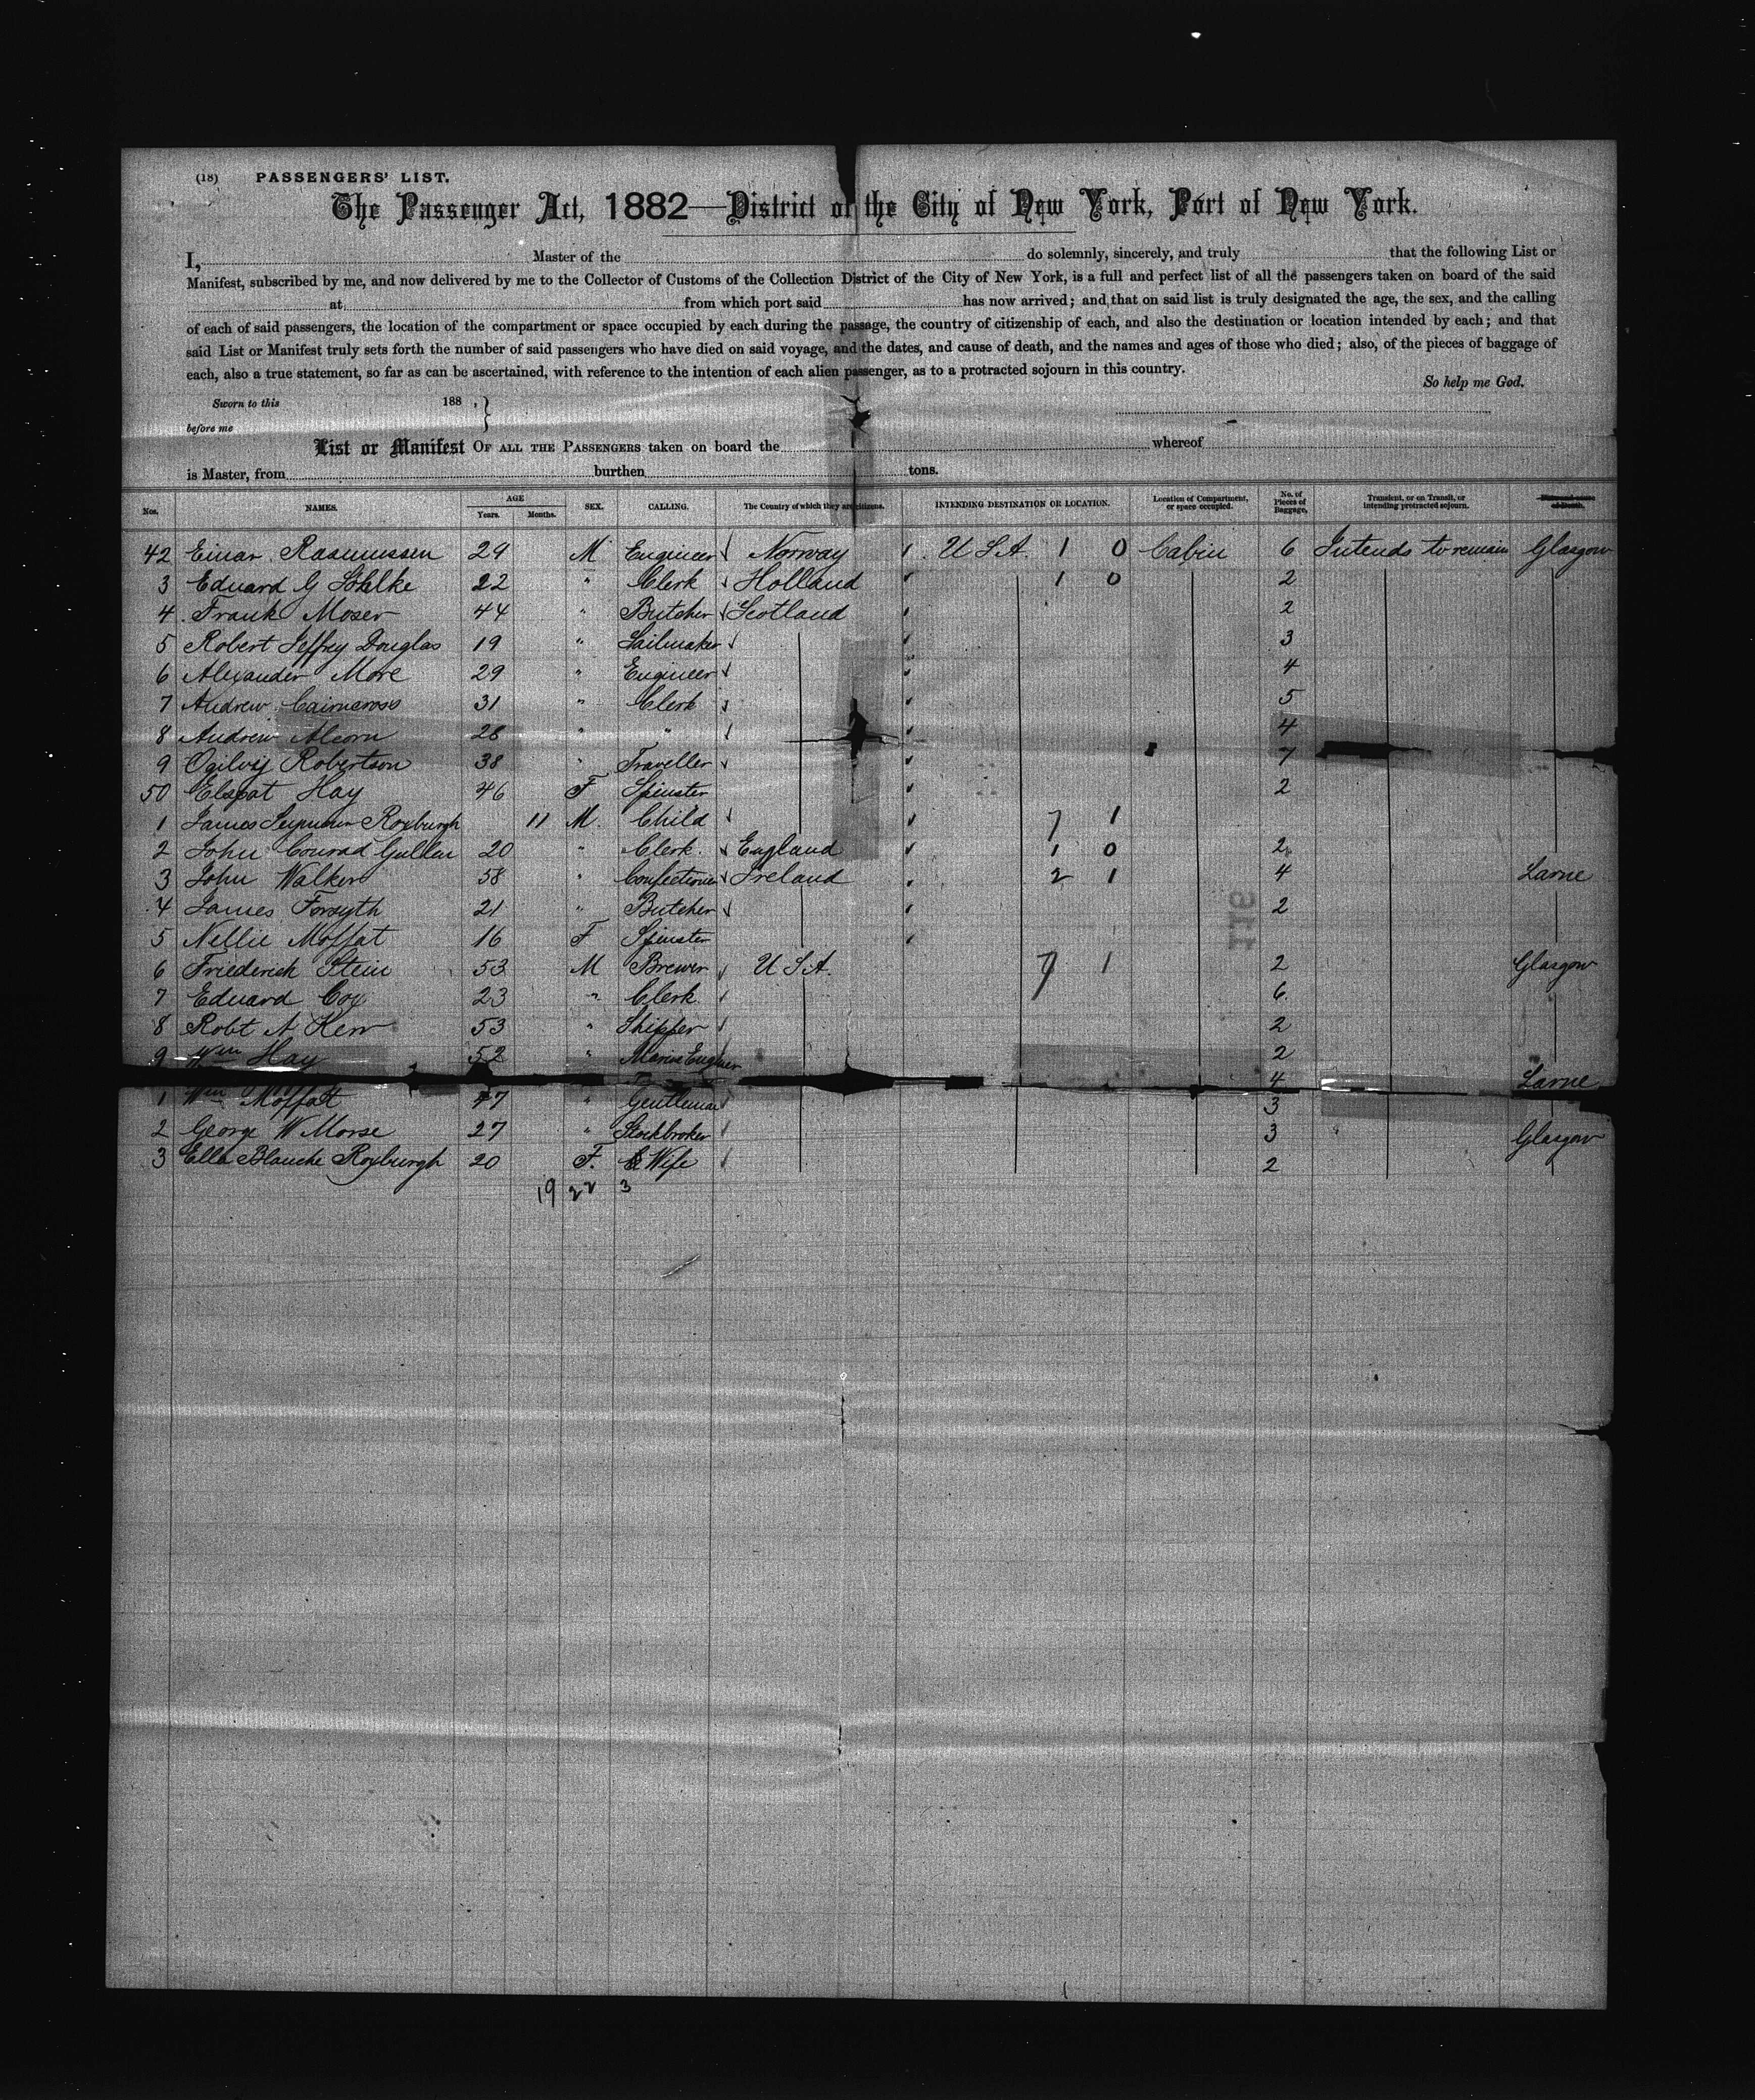 (18) PASSENGERS' LIST.
The Passenger Act, 1882—District of the City of New York, Port of New York.
I, Master of the do solemnly, sincerely, and truly that the following List or
Manifest, subscribed by me, and now delivered by me to the Collector of Customs of the Collection District of the City of New York, is a full and perfect list of all the passengers taken on board of the said
at from which port said has now arrived; and that on said list is truly designated the age, the sex, and the calling
of each of said passengers, the location of the compartment or space occupied by each during the passage, the country of citizenship of each, and also the destination or location intended by each; and that
said List or Manifest truly sets forth the number of said passengers who have died on said voyage, and the dates, and cause of death, and the names and ages of those who died; also, of the pieces of baggage of
each, also a true statement, so far as can be ascertained, with reference to the intention of each alien passenger, as to a protracted sojourn in this country.
So help me God.
Sworn to this 188 ,
before me
List or Manifest OF ALL THE PASSENGERS taken on board the whereof
is Master, from burthen tons.
Nos. NAMES. AGE Years. Months. SEX. CALLING. The Country of which they are citizens. INTENDING DESTINATION OR LOCATION. Location of Compartment, or space occupied. No. of Pieces of Baggage, Transient, or on Transit, or intending protracted sojourn.
42 Einar Rasmussen 29 M Engineer Norway U S A. 1 0 Cabin 6 Intends to remain Glasgow
3 Eduard G 22 " Clerk Holland 1 0 2
4 Frank Moser 44 " Butcher Scotland 2
5 Robert Jeffrey Douglas 19 " Sailmaker 3
6 Alexander More 29 " Engineer 4
7 Andrew Cairncross 31 " Clerk 5
8 Andrew Alcorn 28 " " 4
9 Ogilvy Robertson 38 " Traveller 7
50 Elspat Hay 46 F Spinster 2
1 James Seymour Roxburgh 11 M. Child 7 1
2 John Conrad Gullen 20 " Clerk. England 1 0 2
3 John Walker 58 " Confectioner Ireland 2 1 4 Larne
4 James Forsyth 21 " Butcher 2
5 Nellie Moffat 16 F Spinster
6 Friederich Stein 53 M Brewer U S A. 7 1 2 Glasgow
7 Eduard Cox 23 " Clerk 6
8 Robt A Kerr 53 " Shipper 2
9 Wm Hay 52 " Marine Engineer 2
4 Larne
1 Wm Moffat 47 " Gentleman 3
2 George W Morse 27 " Stockbroker 3 Glasgow
3 Ella Blanche Roxburgh 20 F. Wife 2
19 22 3
116